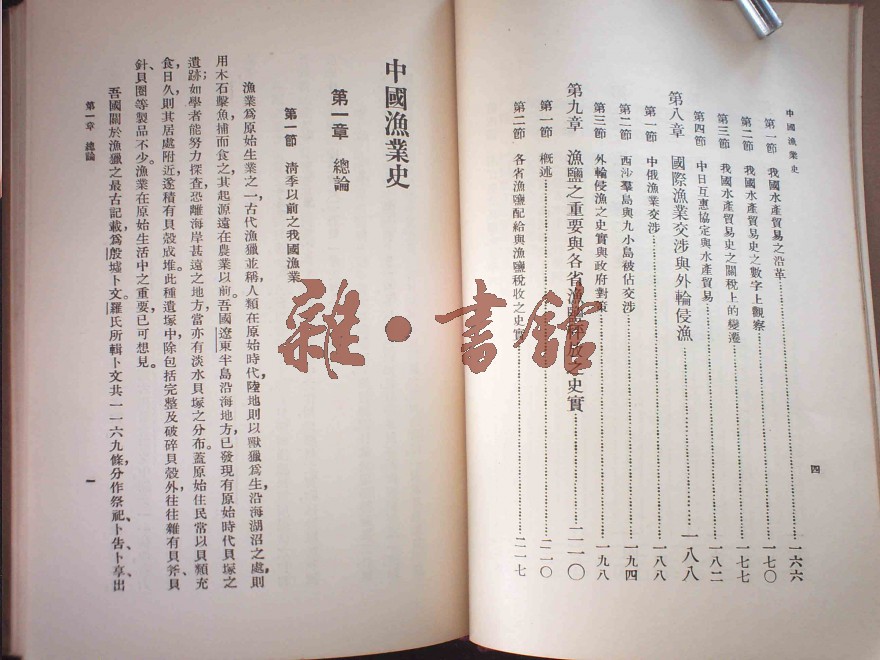 中國漁業史
第一節 我國水產貿易之沿革……一六六
第二節 我國水產貿易史之數字上觀察……一七〇
第三節 我國水產貿易史之關稅上的變遷……一七七
第四節 中日互惠協定與水產貿易……一八二
第八章 國際漁業交涉與外輪侵漁……一八八
第一節 中俄漁業交涉……一八八
第二節 西沙羣島與九小島被佔交涉……一九四
第三節 外輪侵漁之史實與政府對策……一九八
第九章 漁鹽之重要與各省漁鹽釋放之史實……二一〇
第一節 概述……二一〇
第二節 各省漁鹽配給與漁鹽稅收之史實……二一七
四
中國漁業史
第一章 總論
第一節 清季以前之我國漁業
漁業爲原始生業之一,古代漁獵並稱,人類在原始時代,陸地則以獸獵爲生,沿海湖沼之處,則
用木石擊魚,捕而食之,其起源遠在農業以前。吾國遼東半島沿海地方,已發現有原始時代貝塚之
遺跡;如學者能努力探查,恐離海岸甚遠之地方,當亦有淡水貝塚之分布。蓋原始住民常以貝類充
食,日久則其居處附近,遂積有貝殼成堆。此種遺塚中,除包括完整及破碎貝殼外,往往雜有貝斧、貝
針、貝圈等製品不少。漁業在原始生活中之重要,已可想見。
吾國關於漁獵之最古記載,爲殷墟卜文。羅氏所輯卜文共一一六九條,分作祭祀、卜告、卜享、出
第一章 總論
一
雜·書館